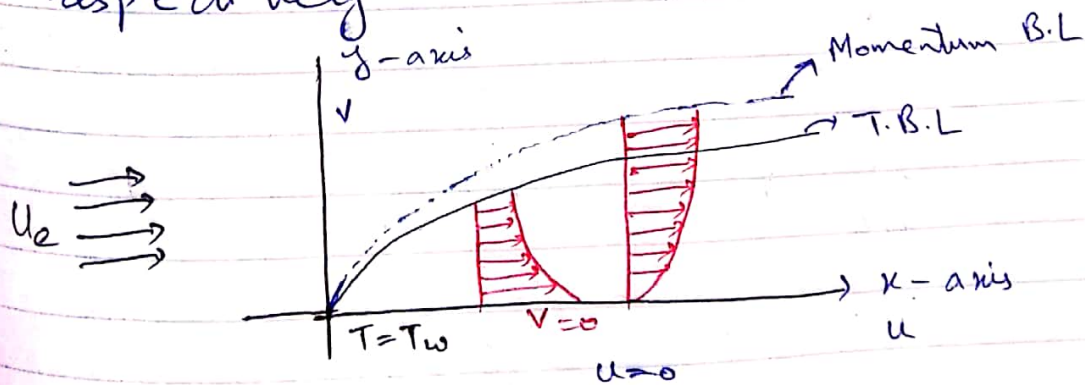 y-axis
Momentum B.L
V
T.B.L
Ue
x-axis
T=Tw
V=0
u
u=0